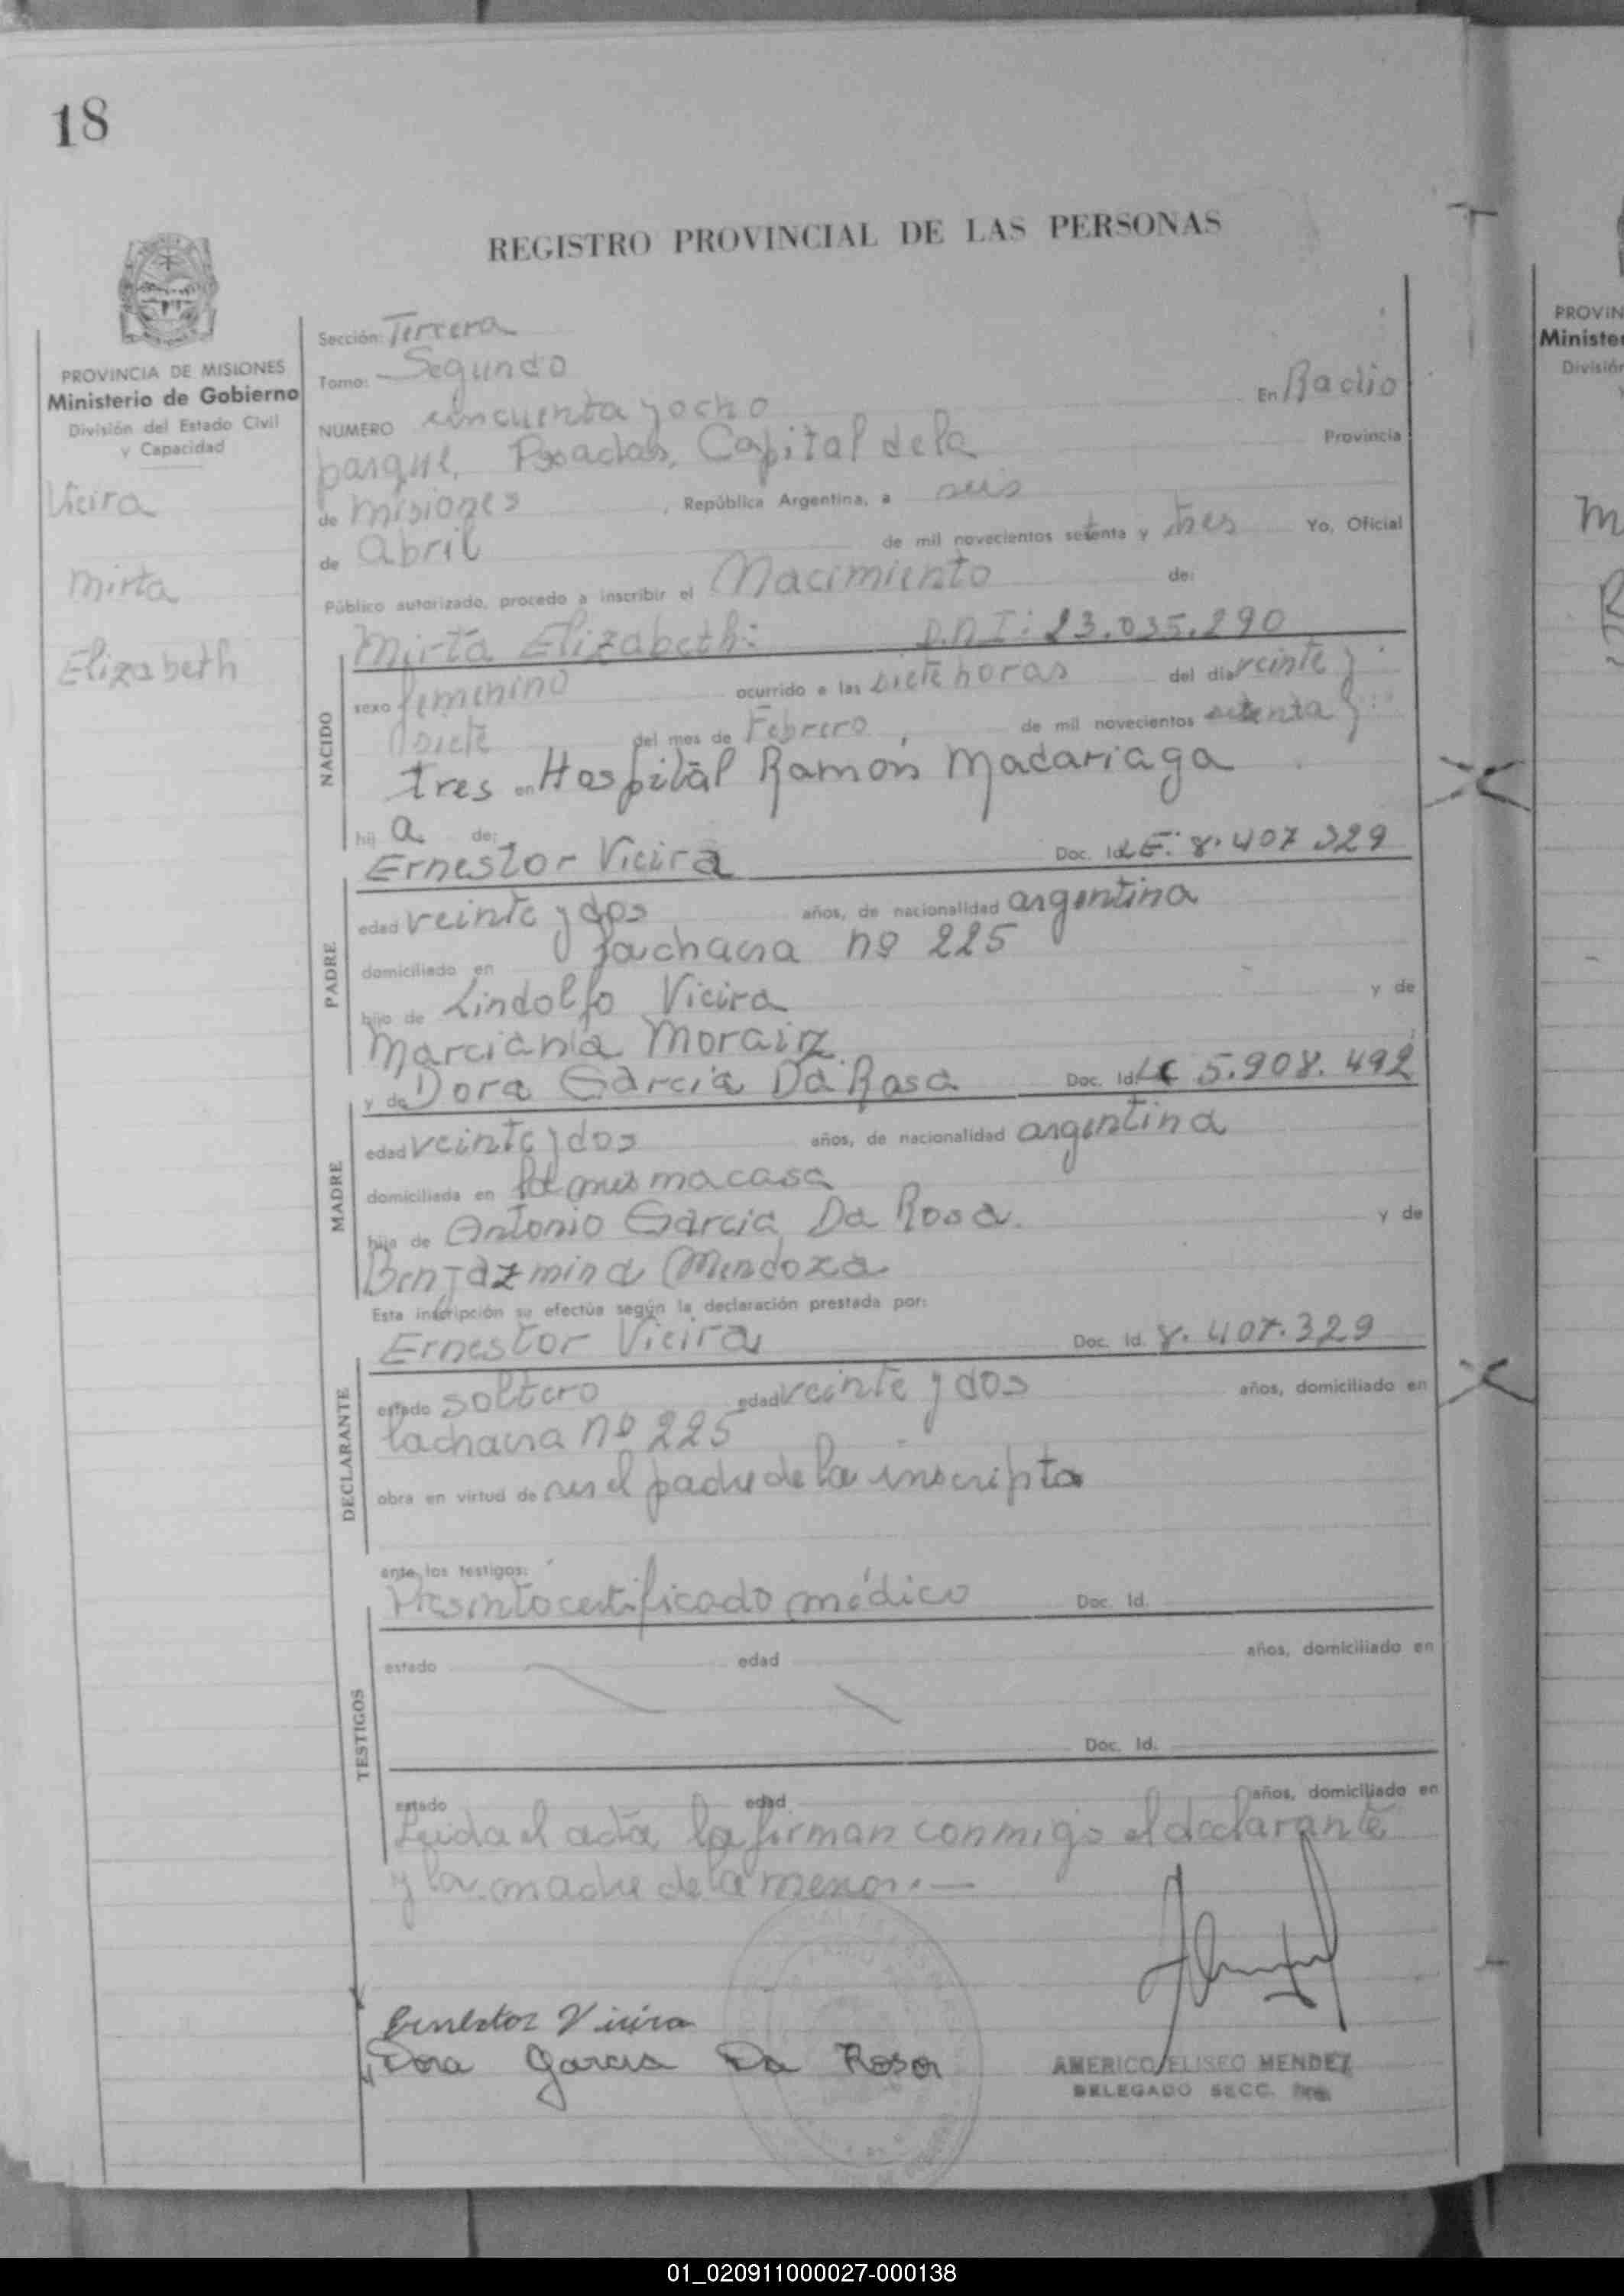 18
REGISTRO PROVINCIAL DE LAS PERSONAS
PROVINCIA DE MISIONES
Ministerio de Gobierno
División del Estado Civil
y Capacidad
Vieira
Mirta
Elizabeth
Sección: Tercera
Tomo: Segundo
NUMERO cincuenta y ocho En Radio
parque, Posadas, Capital de la Provincia
de Misiones, República Argentina, a seis
de Abril de mil novecientos setenta y tres Yo, Oficial
Público autorizado, procedo a inscribir el Nacimiento de:
Mirta Elizabeth: D.N.I: 23.035.290
NACIDO
sexo femenino ocurrido a las siete horas del día veinte y
siete del mes de Febrero, de mil novecientos setenta y
tres en Hospital Ramón Madariaga
hij a de:
Ernestor Vieira Doc. Id. L.E: 8.407.329
PADRE
edad veinte y dos años, de nacionalidad argentina
domiciliado en chacra nº 225
hijo de Lindolfo Vieira y de
Marciania
y de Dora Garcia Da Rosa Doc. Id. LC 5.908.492
MADRE
edad veinte y dos años, de nacionalidad argentina
domiciliada en la misma casa
hija de Antonio Garcia Da Rosa. y de
Benjazmina Mendoza
Esta inscripción se efectúa según la declaración prestada por:
Ernestor Vieira Doc. Id. 8.407.329
DECLARANTE
estado soltero edad veinte y dos años, domiciliado en
la chacra nº 225
obra en virtud de ser el padre de la inscripta
ante los testigos:
Presento certificado médico Doc. Id.
TESTIGOS
estado edad años, domiciliado en
Doc. Id.
estado edad años, domiciliado en
Leida el acta, la firman conmigo el declarante
y la madre de la menor.—
Ernestor Vieira
Dora Garcia Da Rosa
AMERICO ELISEO MENDEZ
DELEGADO SECC.
PROVIN
Minister
División
01_020911000027-000138